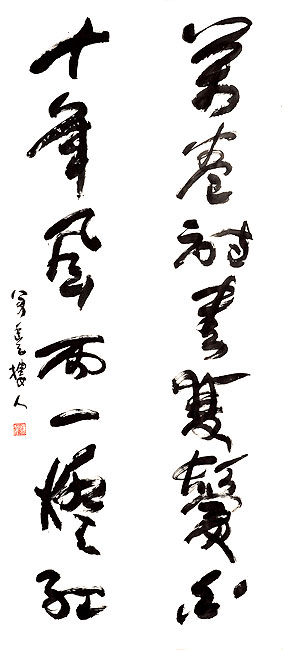 萬卷詩書雙鬢白
十年風雨一燈紅
樓人